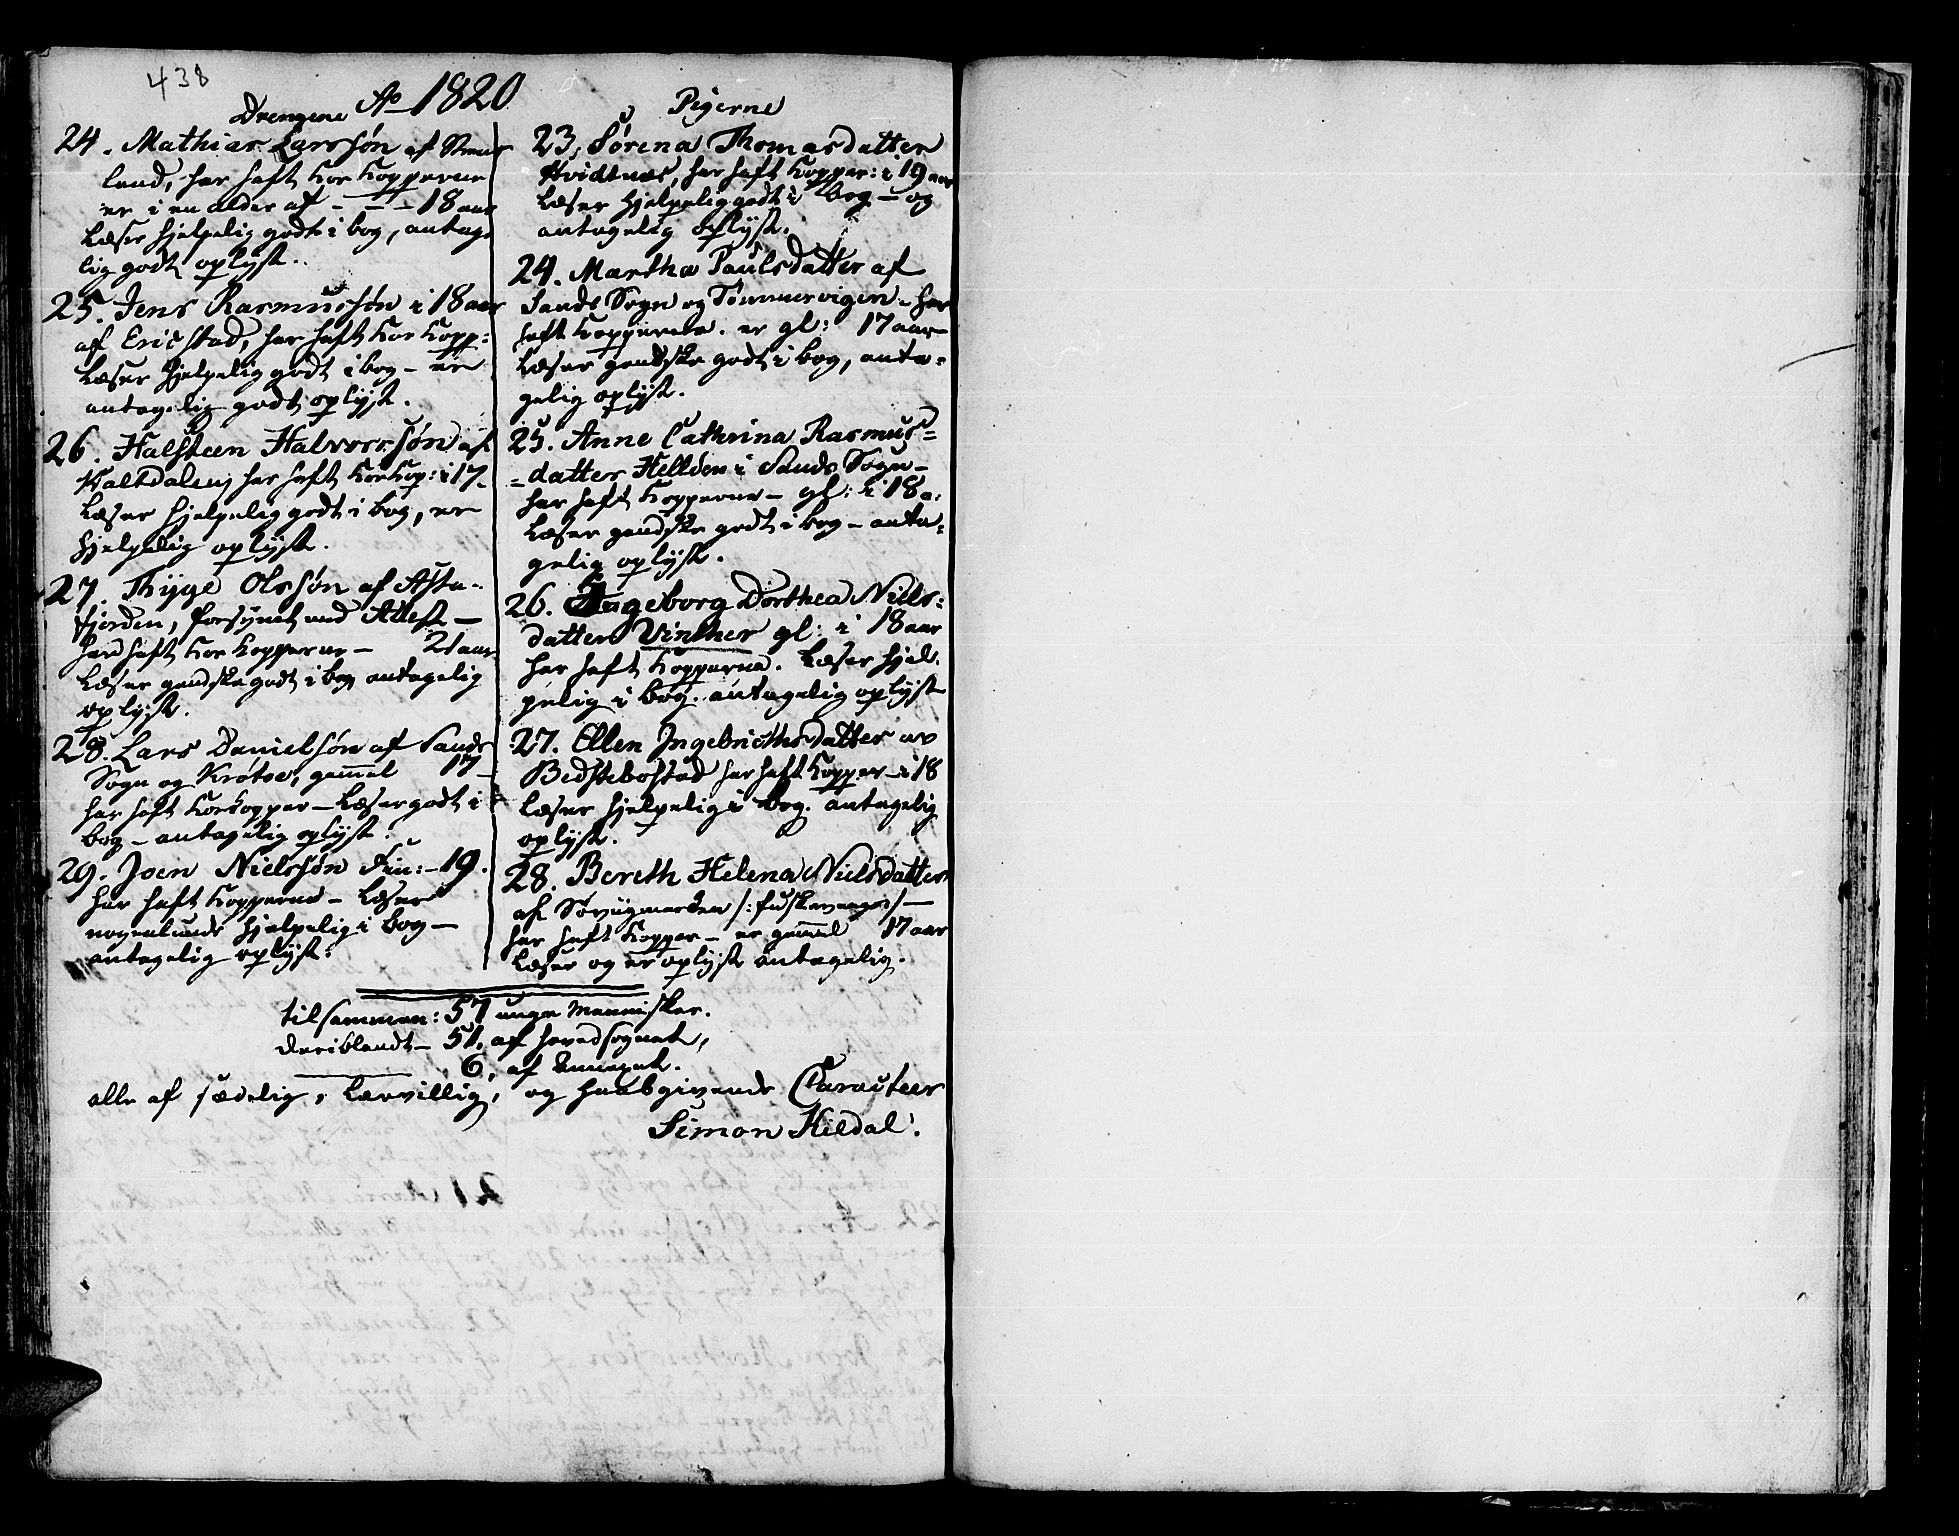 438
Ao 1820
Drengene
24. Mathias Larssøn af
land, har haft Koe Kopperne
er i en alder af - - - 18 aar
Læser hjelpelig godt i bog, antage-
lig godt oplyst.
25. Jens Rasmussøn i 18 aar
af Ericstad, har haft Koe Kopp:
Læser hjelpelig godt i bog - er
antagelig godt oplyst.
26. Halsteen Halvorssøn af
Kaltdalen, har haft KoeKop: i 17.
Læser hjelpelig godt i bog, er
hjelpelig oplyst.
27. Thyge Olssøn af Asta-
fjorden, forsynet med Attest -
har haft Koe Kopperne - 21 aar
Læser gandske godt i bog antagelig
oplyst.
28. Lars Danielsøn af Sands
Sogn og Krøtøe, gammel 17 -
har haft Koekopper - Læser godt i
bog - antagelig oplyst.
29. Joen Nielssøn Fin: - 19.
har haft Kopperne - Læser
nogenlunde hjelpelig i bog -
antagelig oplyst.
Pigerne
23, Sørena Thomasdatter
Hvidtnæs, har haft Kopper: i 19 aar
Læser hjelpelig godt i bog - og
antagelig oplyst.
24. Martha Paulsdatter af
Sands Sogn og Tømmervigen - har
haft Kopperne. er gl: 17 aar -
Læser gandske godt i bog, anta-
gelig oplyst.
25. Anne Cathrina Rasmus=
=datter Hellden i Sands Sogn -
har haft Kopperne - gl: i 18 a:
Læser gandske godt i bog - anta-
gelig oplyst.
26. Ingeborg Dorthea Niels=
datter Vinther gl: i 18 aar
har haft Kopperne. Læser hjel-
pelig i bog. antagelig oplyst
27. Ellen Ingebricthsdatter av
Bedstebostad har haft Kopper - i 18
læser hjelpelig i bog. antagelig
oplyst.
28. Bereth Helena Nielsdatter
af Sørviigmarken /: /-
har haft Kopper - er gammel 17 aar
Læser og er oplyst antagelig.
tilsammen: 57 unge Mennisker.
deriblandt - 51, af hovedsognet,
6, af Annexet.
alle af sædelig, Lærvillig, og haabgivende Caracteer
Simon Kildal.